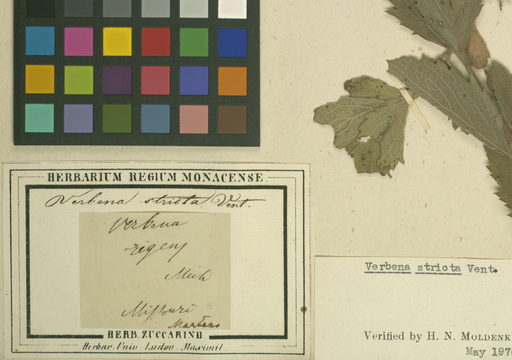 HERBARIUM REGIUM MONACENSE
Verbena stricta Vent.
Verbena
Missouri
HERB. ZUCCARINII
Herbar. Univ. Ludov. Maximil
Verbena stricta Vent.
Verified by H. N. MOLDENK
May 197